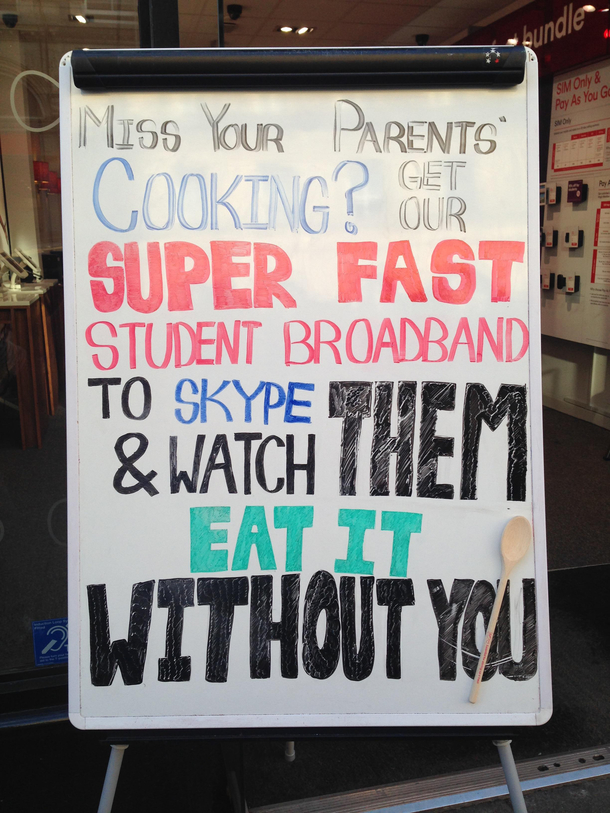 bundle
SIM Only &
Pay As You Go
SIM Only
MISS YOUR PARENTS'
COOKING? GET
OUR
SUPER FAST
STUDENT BROADBAND
TO SKYPE THEM
& WATCH
EAT IT
WITHOUT YOU